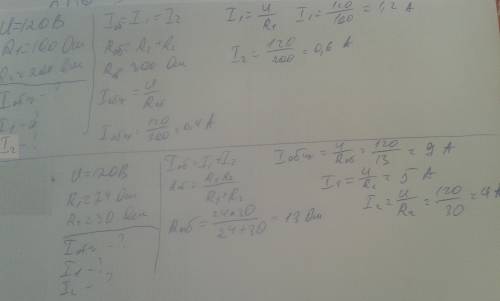 U=120В
R1=100 Ом
R2=200 Ом
Iобщ - ?
I1 - ?
I2
Iоб=I1=I2
Rоб=R1+R2
Rоб 300 Ом
Iобщ=U/Rоб
Iобщ=120/300=0,4 А
I1=U/R1 I1=120/100=1,2 А
I2=120/200=0,6 А
U=120В
R1=24 Ом
R2=30 Ом
Iобщ - ?
I1 - ?
I2 -
Iоб=I1+I2
Rоб=R1R2/R1+R2
Rоб=24*30/24+30=13 Ом
Iобщ=U/Rоб=120/13=9 А
I1=U/R1=5 А
I2=U/R2=120/30=4 А